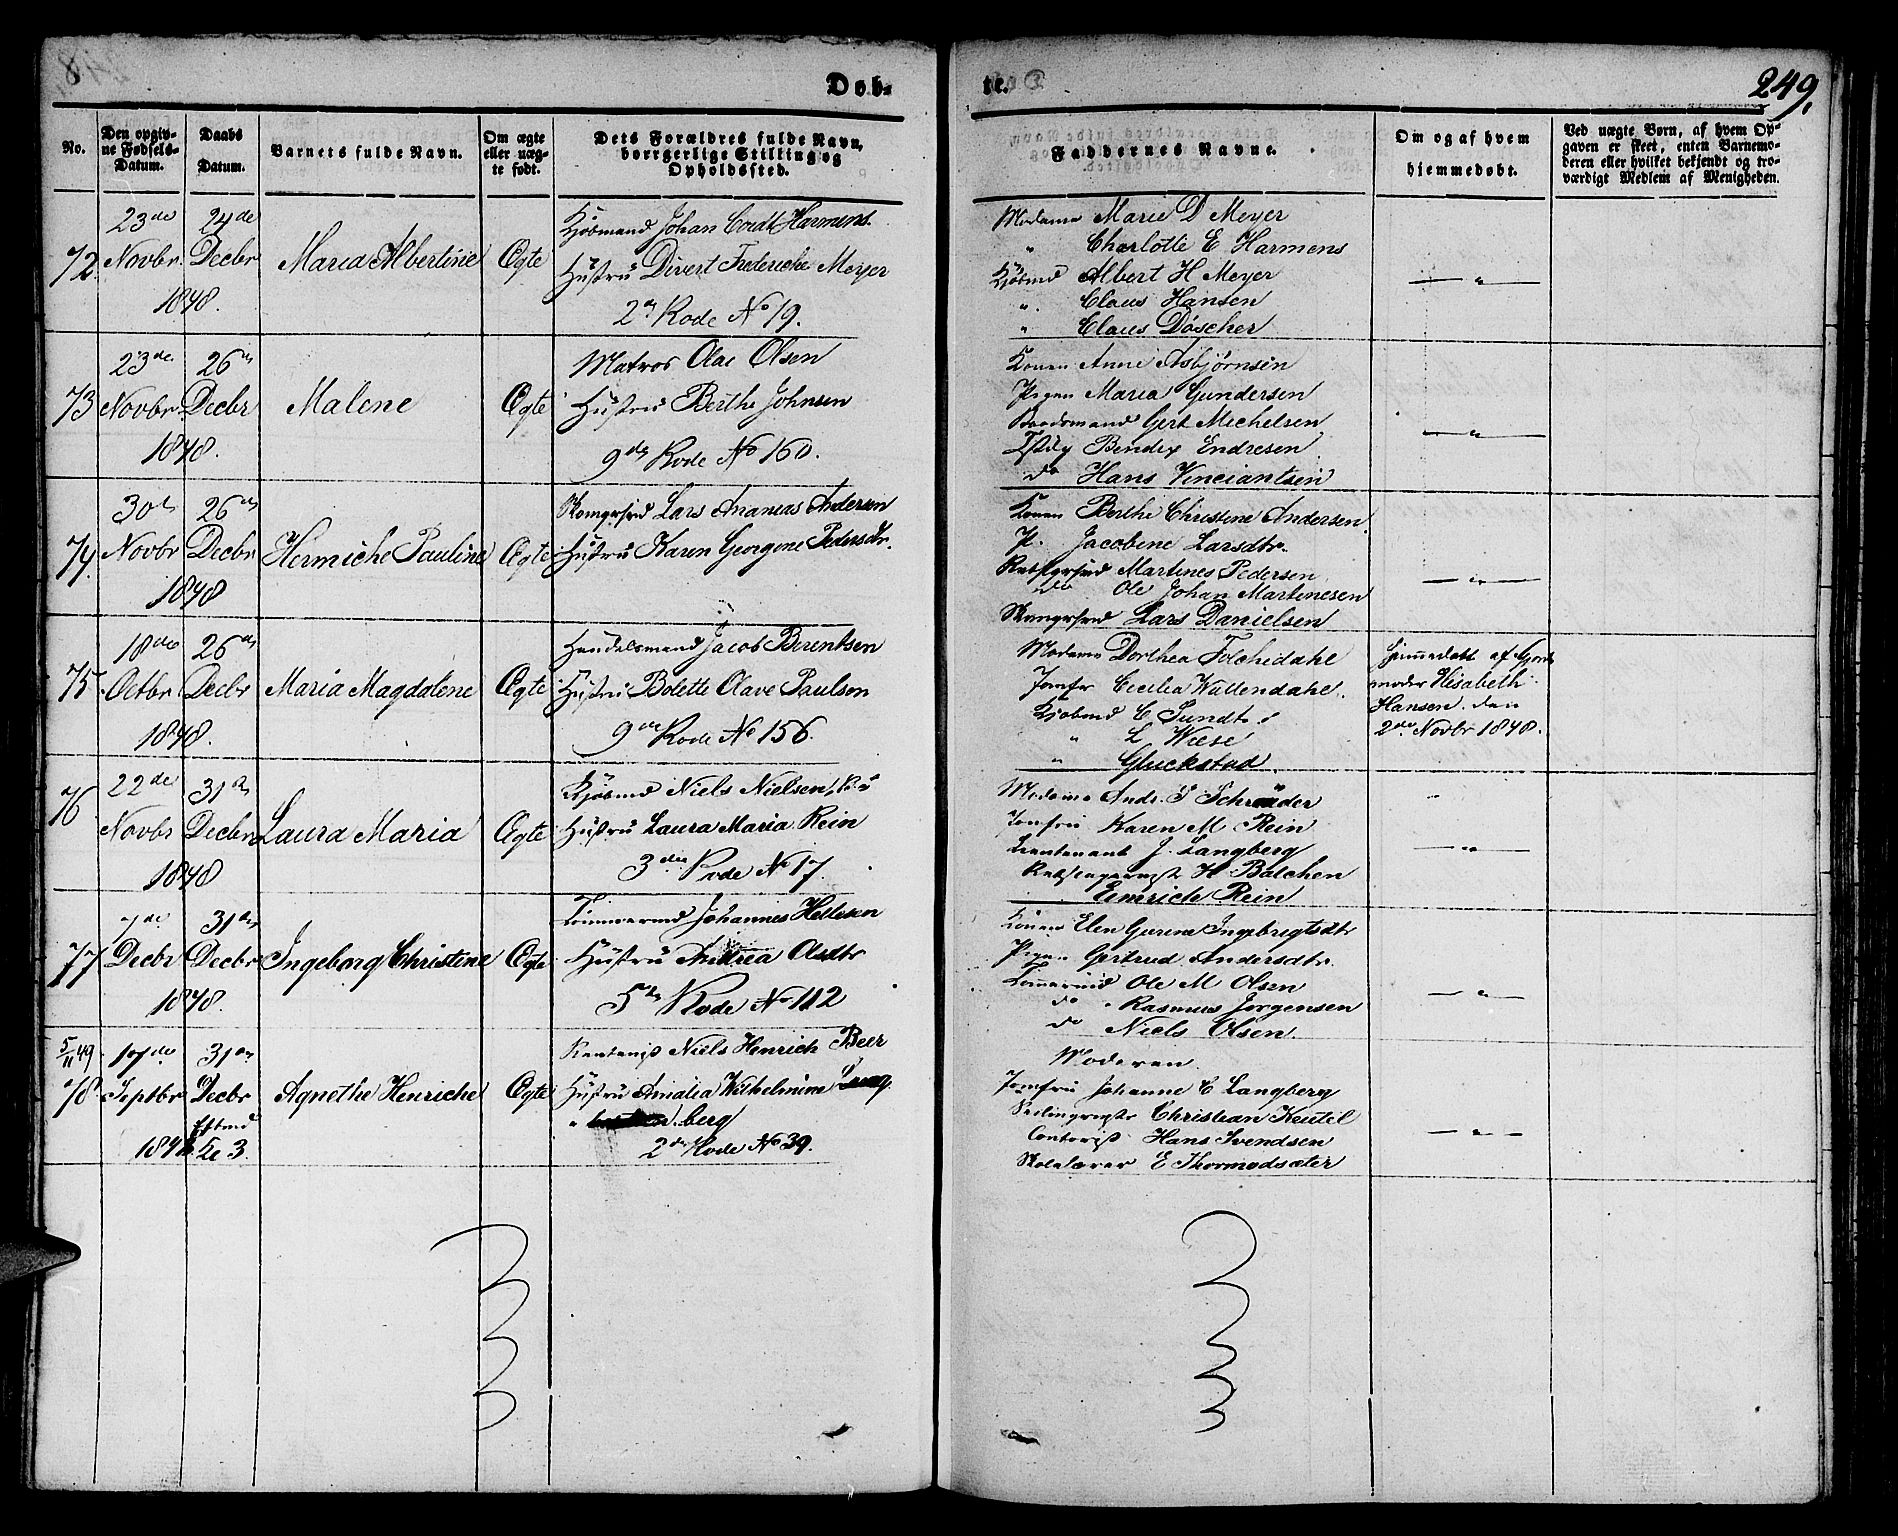 Døb-
te.
249.
No.
Den opgiv-
ne Fødsels-
Datum.
Daabs
Datum.
Barnets fulde Navn.
Om ægte
eller uæg-
te født.
Dets Forældres fulde Navn,
borrgerlige Stilling og
Opholdssted.
Faddernes Navne.
Om og af hvem
hjemmedøbt.
Ved uægte Børn, af hvem Op-
gaven er skeet, enten Barnemo-
deren eller hvilket bekjendt og tro-
værdigt Medlem af Menigheden.
72.
23de
Novbr
24de
Decbr
1848.
Maria Albertine
Ægte
Kjøbmand Johan Cordt Harmens.
Hustru Divert Frederiche Meyer
2n Rode No 19.
Madame Marie D Meyer
" Charlotte E Harmens
Kjøbmd Albert H Meyer
". Claus Hansen
" Claus Döscher
— " —
73
23de
Novbr
26de
Decbr
1848.
Malene
Ægte
Matros Olae Olsen
Hustru Berthe Johnsen
9de Rode No 160.
Konen Anne Asbjørnsen
Pigen Maria Gundersen
Baadsmand Gert Michelsen
Bendix Endresen
do Hans Vinciantsen
— " —
74.
30de
Novbr
26de
Decbr
1848
Hermiche Pauline
Ægte
Lars Ananias Andersen
Hustru Karen Georgene Pedersdtr.
Konen Berthe Christine Andersen
P. Jacobene Larsdtr.
Martines Pedersen
do Ole Johan Martinesen
Lars Danielsen
— " —
75
18de
Octbr
26de
Decbr
1848.
Maria Magdalene
Ægte
Handelsmand Jacob Berentsen
Hustru Bolette Olave Paulson
9de Rode No 156.
Madame Dorthea Folchedahl
Jomfr Cecilia Wallendahl.
Kjøbmd C Sundt
" L Wiese
" Gluckstad.
Hjemmedøbt af Gjord-
moder Elisabeth
Hansen. den
2de Novbr 1848.
76
22de
Novbr
31de
Decbr
1848
Laura Maria
Ægte
Kjøbmd Niels Nielsen,
Hustru Laura Maria Rein
3die Rode No 17.
Madame Andr. S Schrøder
Jomfru Karen M Rein
Lieutenant J. Langberg
H Balchen
Emrich Rein
— " —
77
7de
Decbr
31de
Decbr
1848.
Ingeborg Christine
Ægte
Tømmermd Johannes Hellesen
Hustru Andrea Olsdtr
5te Rode No 112
Konen Elen Gurine Ingebrigtsdtr
Pigen Gertrud Andersdtr.
Tømmermd Ole M Olsen
do " Rasmus Jørgensen
do Niels Olsen.
— " —
5/11 49
78
17de
Septbr
31de
Decbr
1848
Agnethe Henriche
Ægte
Niels Henrich Beer
Hustru Amalia Wilhelmine Lang
berg
2de Rode No 39.
Moderen.
Jomfru Johanne C Langberg
Christian Keutel
Contorist Hans Svendsen
Skolelærer E Thormodsæter
— " —